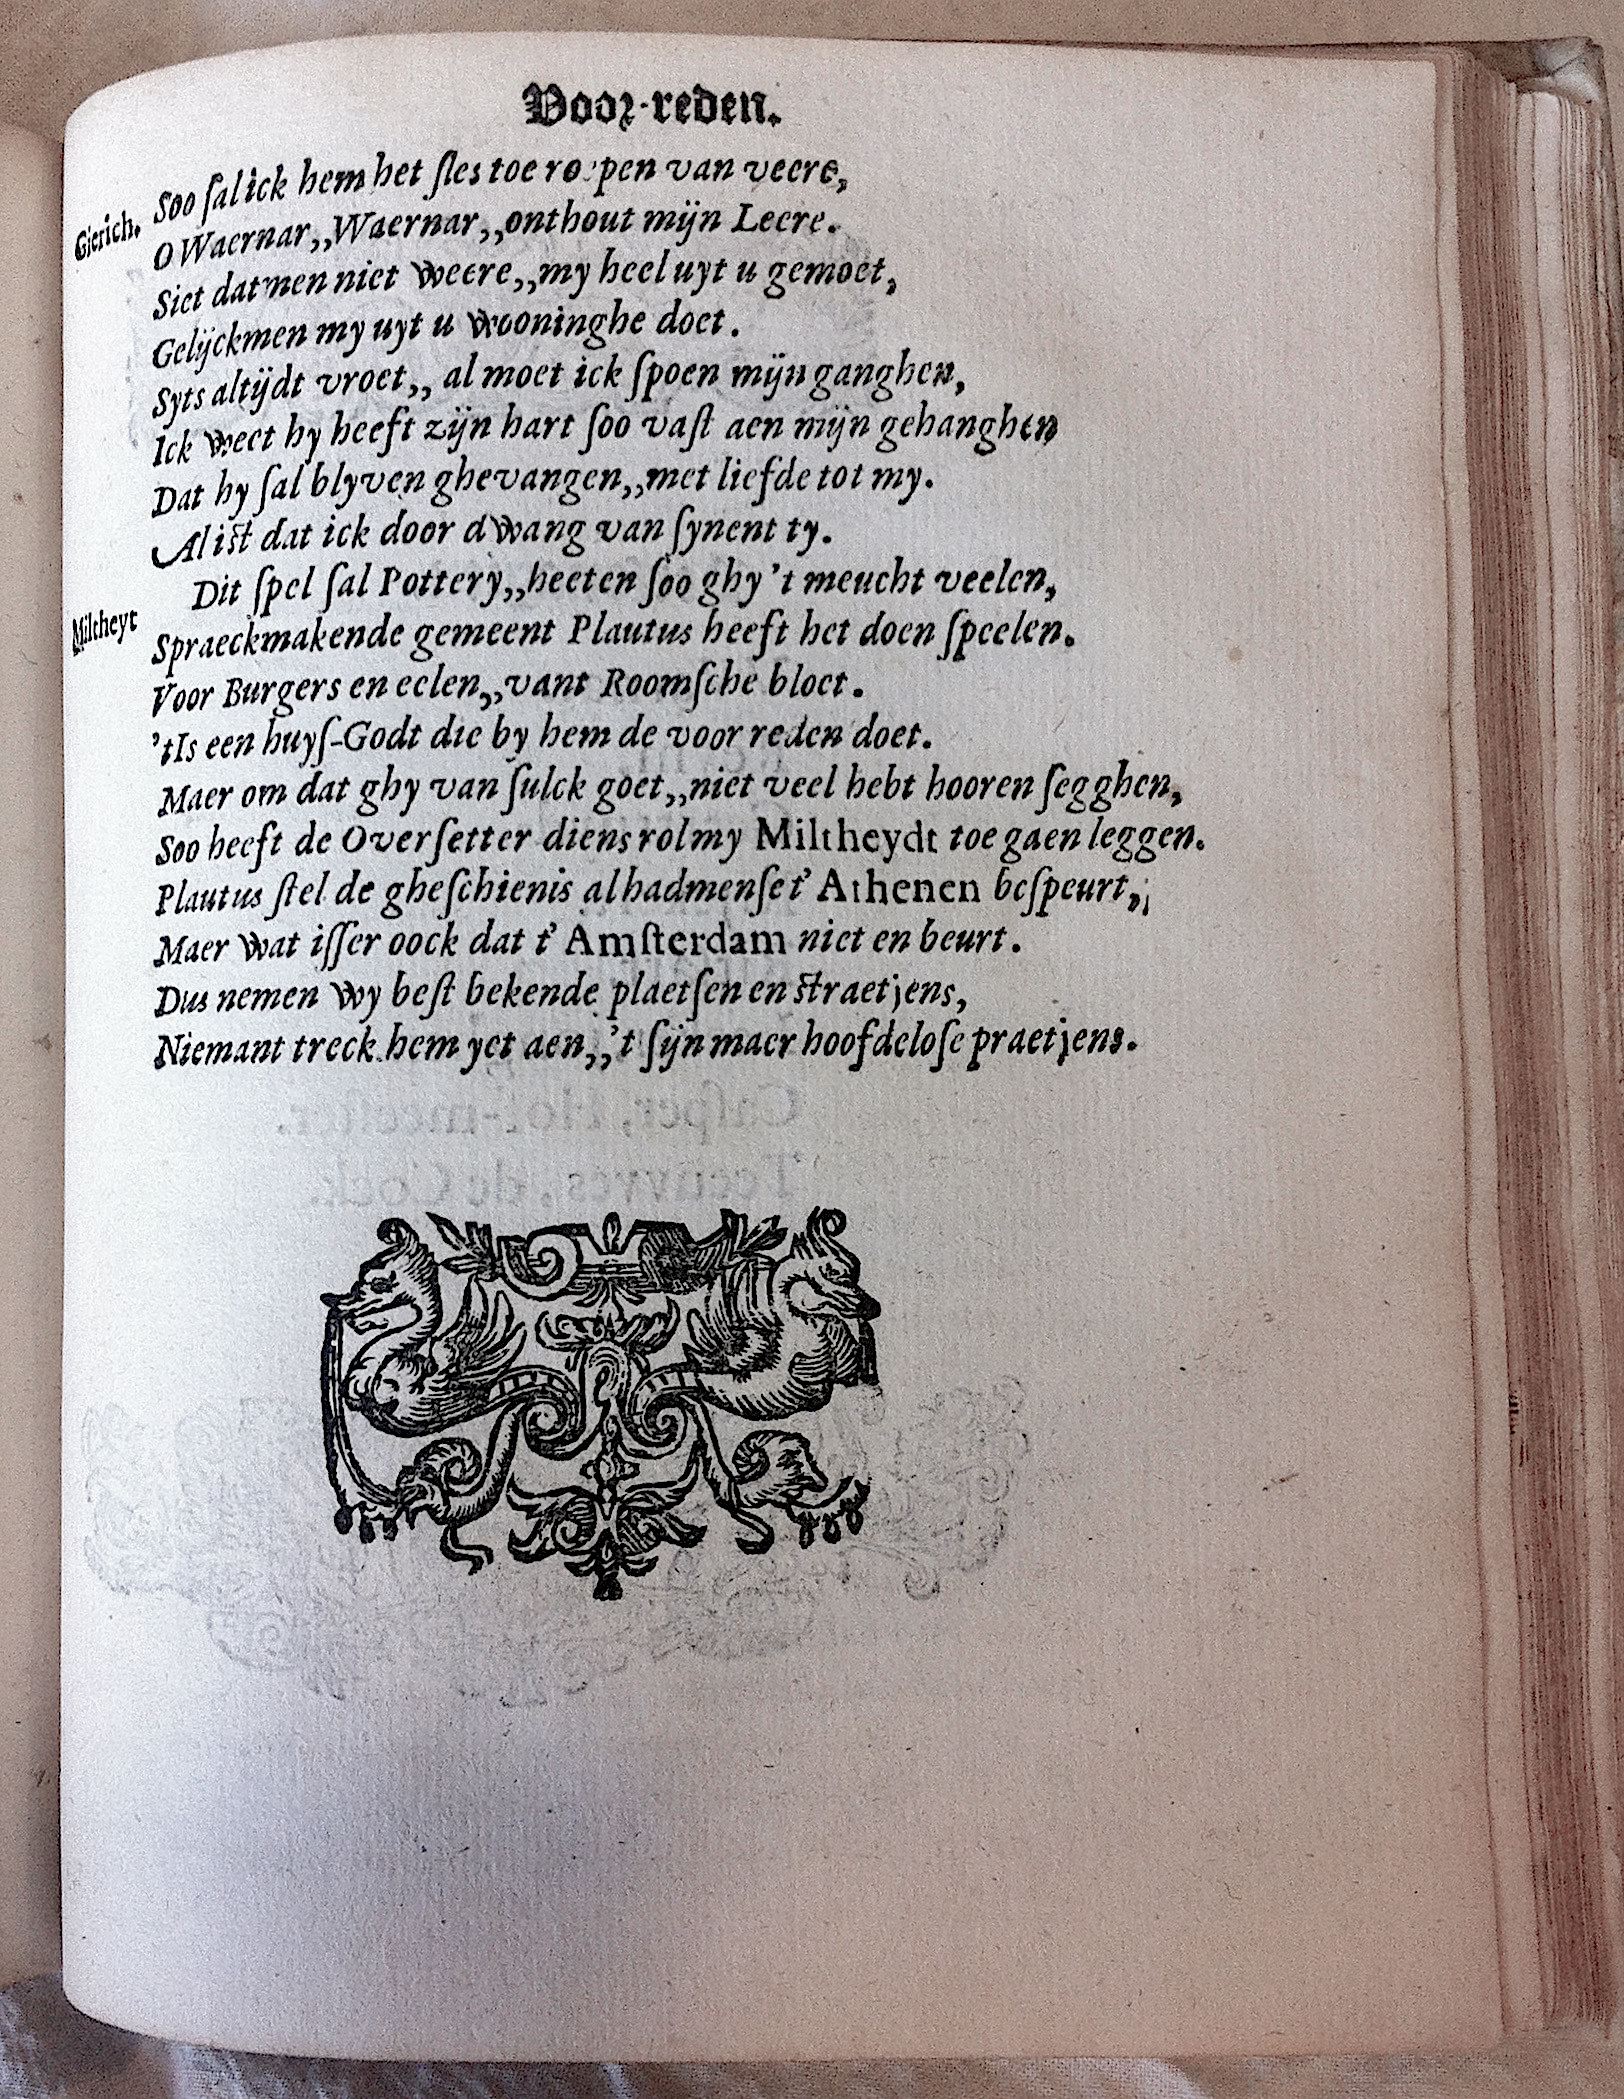 Voor-reden.
Soo ſal ick hem het ſles toe roepen van veere,
Gierich. O Waernar,,Waernar,,onthout mijn Leere.
Siet datmen niet weere,,my heel uyt u gemoet,
Gelijckmen my uyt u wooninghe doet.
Syts altijdt vroet,, al moet ick ſpoen mijn ganghen,
Ick weet hy heeft zijn hart ſoo vaſt aen mijn gehanghen
Dat hy ſal blyven ghevangen,,met liefde tot my.
Al iſt dat ick door dwang van ſynent ty.
Dit ſpel ſal Pottery,,heeten ſoo ghy 't meucht veelen,
Miltheyt Spraeckmakende gemeent Plautus heeft het doen ſpeelen.
Voor Burgers en eelen,,vant Roomſche bloet.
'tIs een huyſ-Godt die by hem de voor reden doet.
Maer om dat ghy van ſulck goet,,niet veel hebt hooren ſegghen,
Soo heeft de Overſetter diens rol my Miltheydt toe gaen leggen.
Plautus ſtel de gheſchienis al hadmenſe t' Athenen beſpeurt,,
Maer wat iſſer oock dat t' Amſterdam niet en beurt.
Dus nemen wy beſt bekende plaetſen en ſtraetjens,
Niemant treck hem yet aen,,'t ſijn maer hoofdeloſe praetjens.